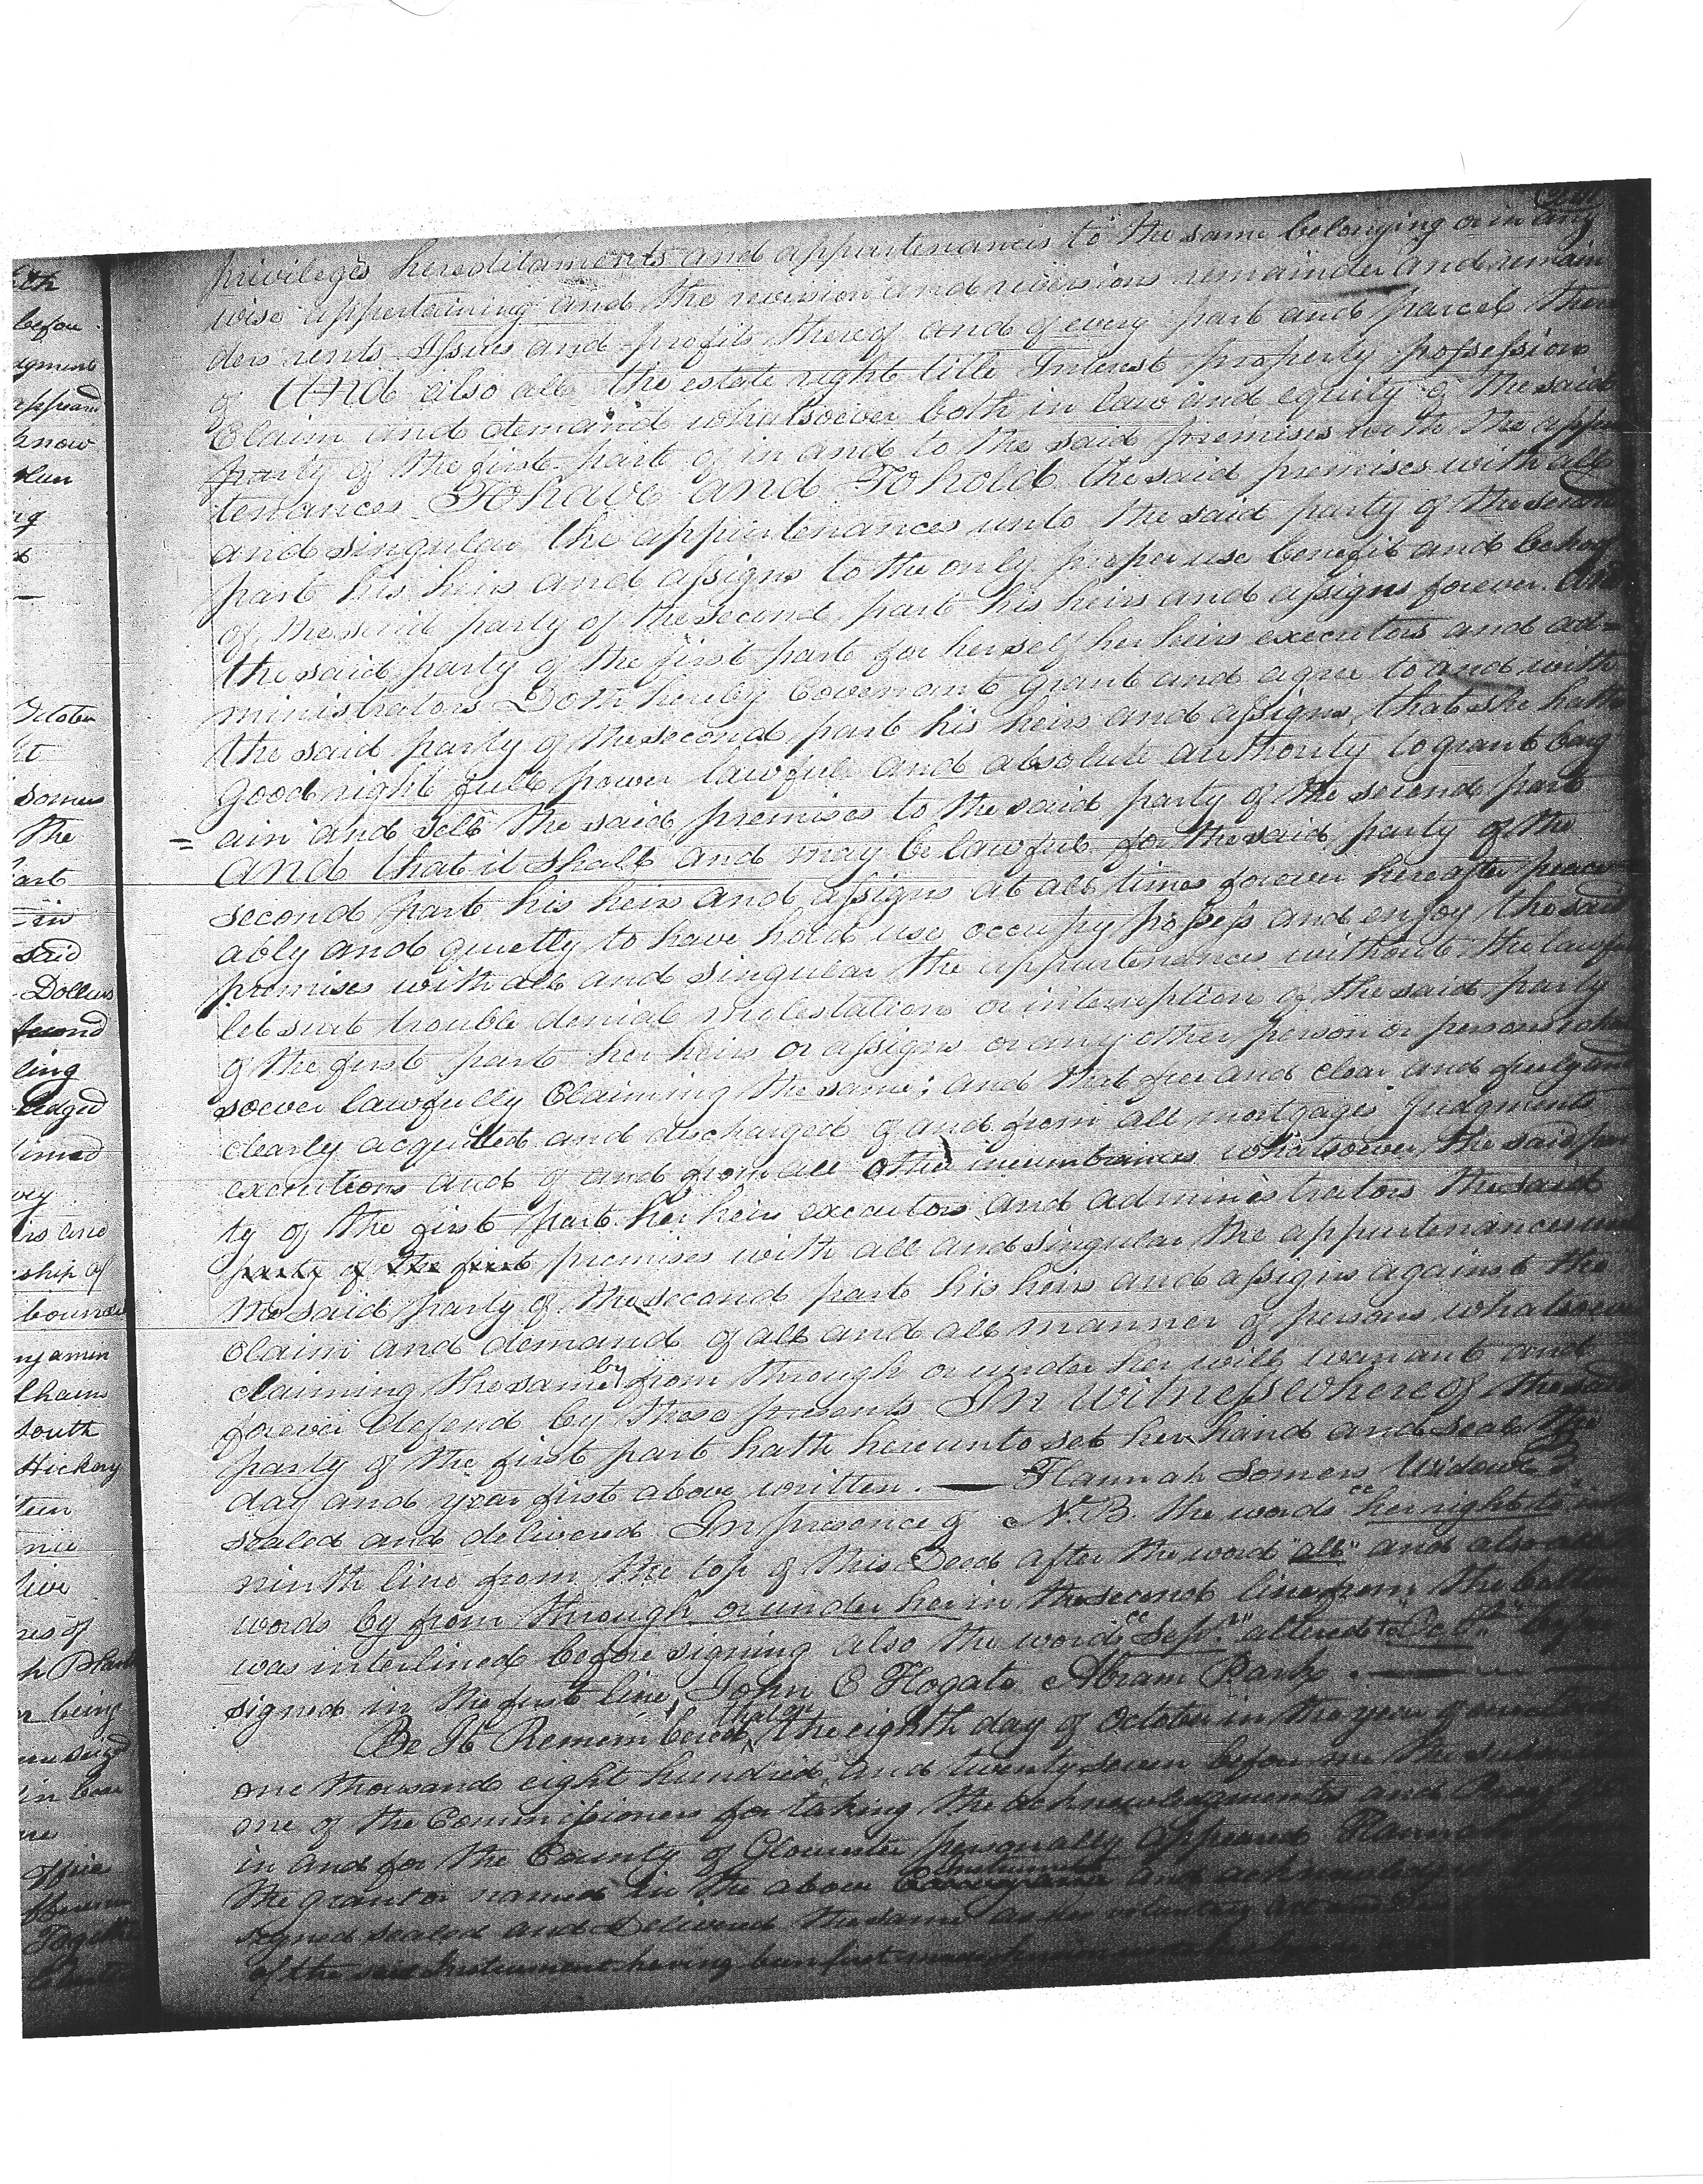 privileges hereditaments and appurtenances to the same belonging or in any
wise appertaining and the reversion and reversions remainder and remain
ders rents Issues and profits thereof and of every part and parcel there
of And also all the estate right title Interest property possession
Claim and demand whatsoever both in law and equity of the said
party of the first part of in and to the said premises with the appur
tenances To have and To hold the said premises with all
and singular the appurtenances unto the said party of the second
part his heirs and assigns to the only proper use benefit and behoof
of the said party of the second part his heirs and assigns forever. And
the said party of the first part for herself her heirs executors and ad=
ministrators Doth hereby Covenant grant and agree to and with
the said party of the second part his heirs and assigns, that she hath
good right full power lawful and absolute authority to grant barg
= ain and sell the said premises to the said party of the second part
And that it shall and may be lawful for the said party of the
second part his heirs and assigns at all times forever hereafter peace
ably and quietly to have hold use occupy possess and enjoy the said
premises with all and singular the appurtenances without the lawful
let suit trouble denial molestation or interruption of the said party
of the first part her heirs or assigns or any other person or persons what
soever lawfully Claiming the same; and that free and clear and freely and
clearly acquitted and discharged of and from all mortgages Judgments
executions and of and from all other incumbrances whatsoever, the said par
ty of the first part her heirs executors and administrators the said
party of the first premises with all and singular the appurtenances unto
the said party of the second part his heirs and assigns against the
claim and demand of all and all manner of persons whatsoever
claiming the same by from through or under her will warrant and
forever defend by these presents In Witness whereof the said
party of the first part hath hereunto set her hand and seal the
day and year first above written. — Hannah Somers Widow
sealed and delivered In presence of N.B. the words "her right to" in the
ninth line from the top of this Deed after the word "all" and also the
words by from through or under her in the second line from the bottom
was interlined before signing also the word "Sept." altered to "Oct." before
signed in the first line, John C Hogate Abram Bank . —
Be It Remembered that on the eighth day of October in the year of our Lord
one thousand eight hundred and twenty seven before me the
one of the Commissioners for taking the acknowledgments and Proof
in and for the County of Gloucester personally appeared Hannah
the grantor named in the above Conveyance Instrument and acknowledged
signed sealed and Delivered the same as her voluntary act and
of the said Instrument having been first made known
before
know
October
Somers
The
part
in
said
Dollars
second
ling
ship of
bounded
south
Hickory
nes of
being
office